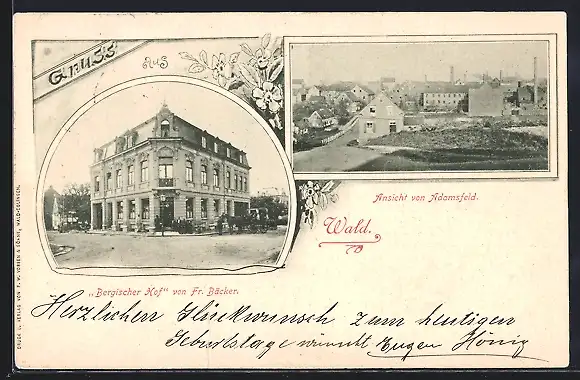 Gruss
aus
Ansicht von Adamsfeld.
Wald.
„Bergischer Hof" von Fr. Bäcker.
Herzlichen Glückwunsch zum heutigen
Geburtstage wünscht Eugen Hönig
DRUCK U. VERLAG VON F. W. VOSSEN & SÖHNE, WALD-SOLINGEN.